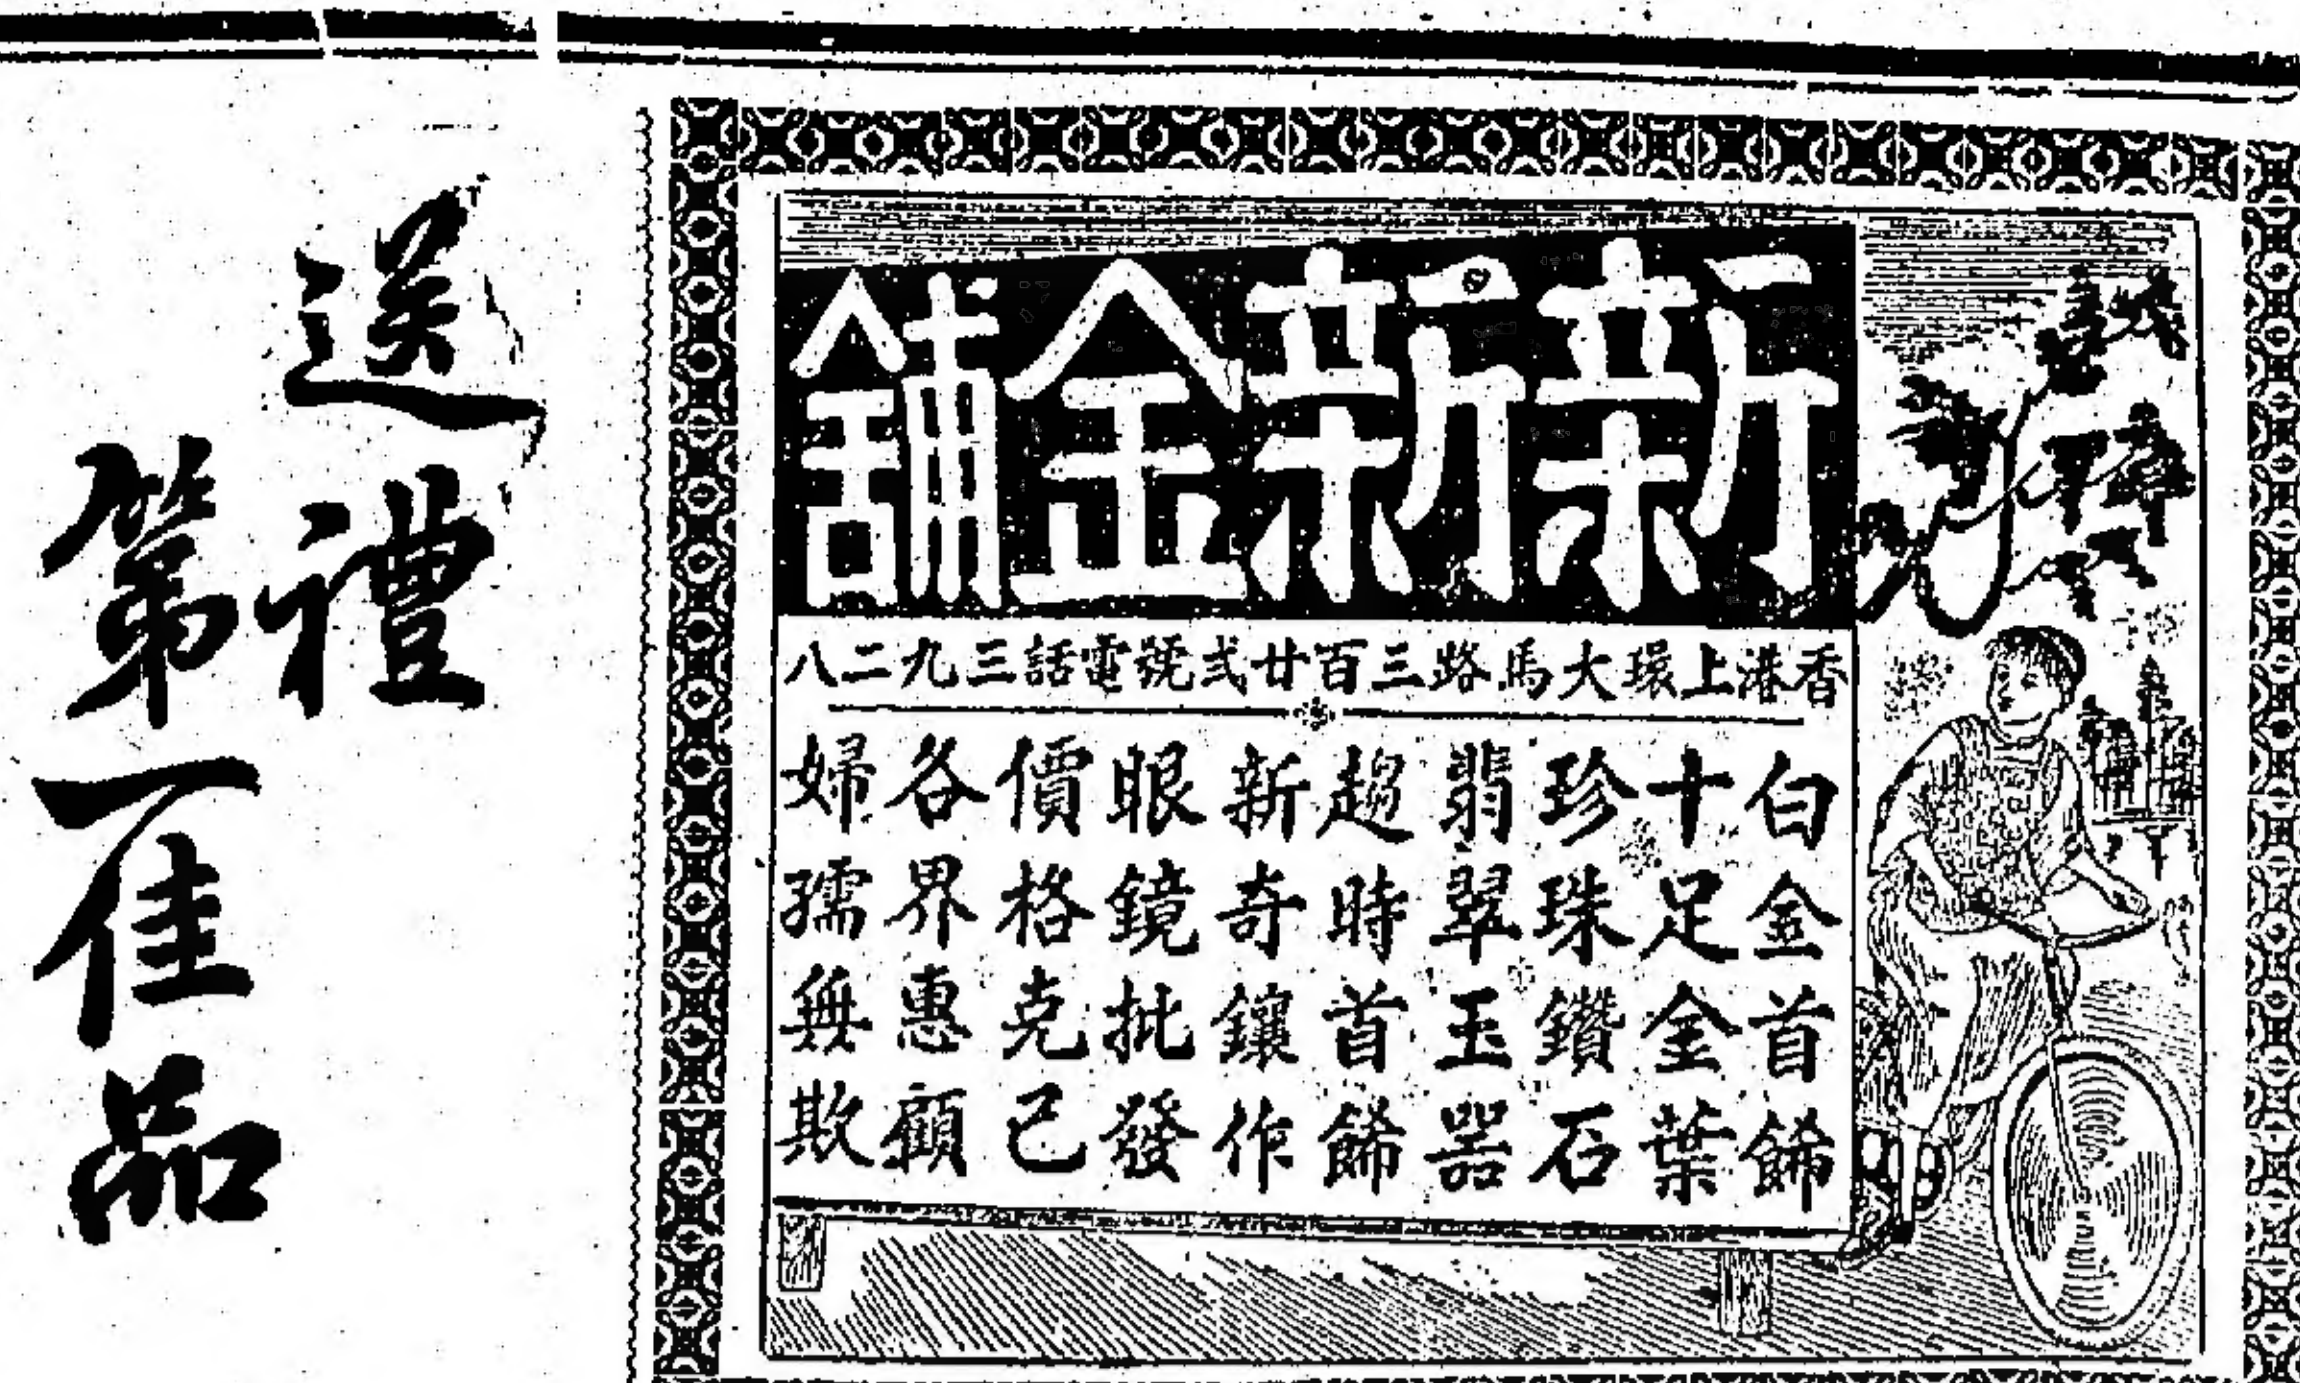 新新金舖
香港上環大馬路三百廿弍號電話三九二八
白金首飾
十足金葉
珍珠鑽石
翡翠玉器
趨時首飾
新奇鑲作
眼鏡批發
價格克己
各界惠顧
婦孺無欺
送禮
第一佳品